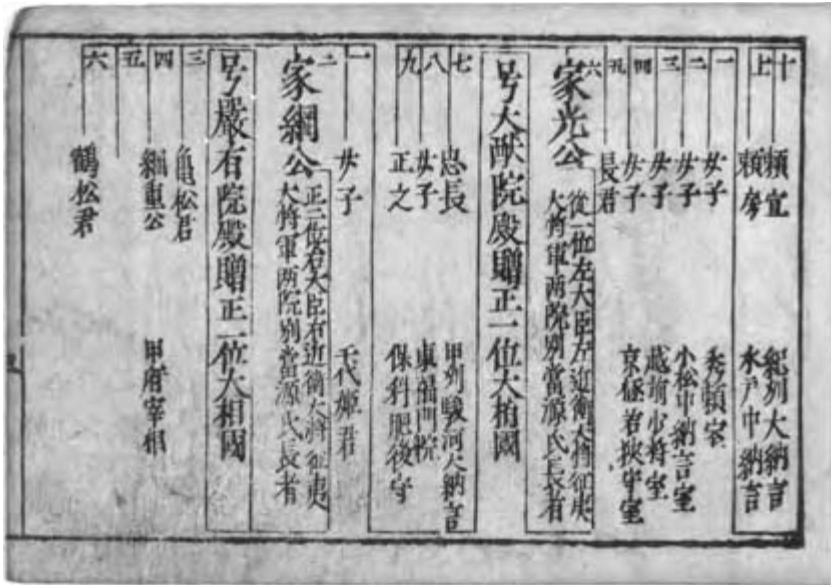 十 頼宣 紀州大納言
十一 頼房 水戸中納言
一 女子 秀頼室
二 女子 小松中納言室
三 女子 越前少将室
四 女子 京極若狭守室
五 長君
六 家光公 從一位左大臣左近衛大将征夷
大将軍両院別當源氏長者
号大猷院殿贈正一位大相國
七 忠長 甲州駿河大納言
八 女子 東福門院
九 正之 保科肥後守
一 女子 千代姫君
二 家綱公 正二位右大臣右近衛大将征夷
大将軍両院別當源氏長者
号嚴有院殿贈正一位大相國
三 亀松君
四 綱重公 甲府宰相
五
六 鶴松君